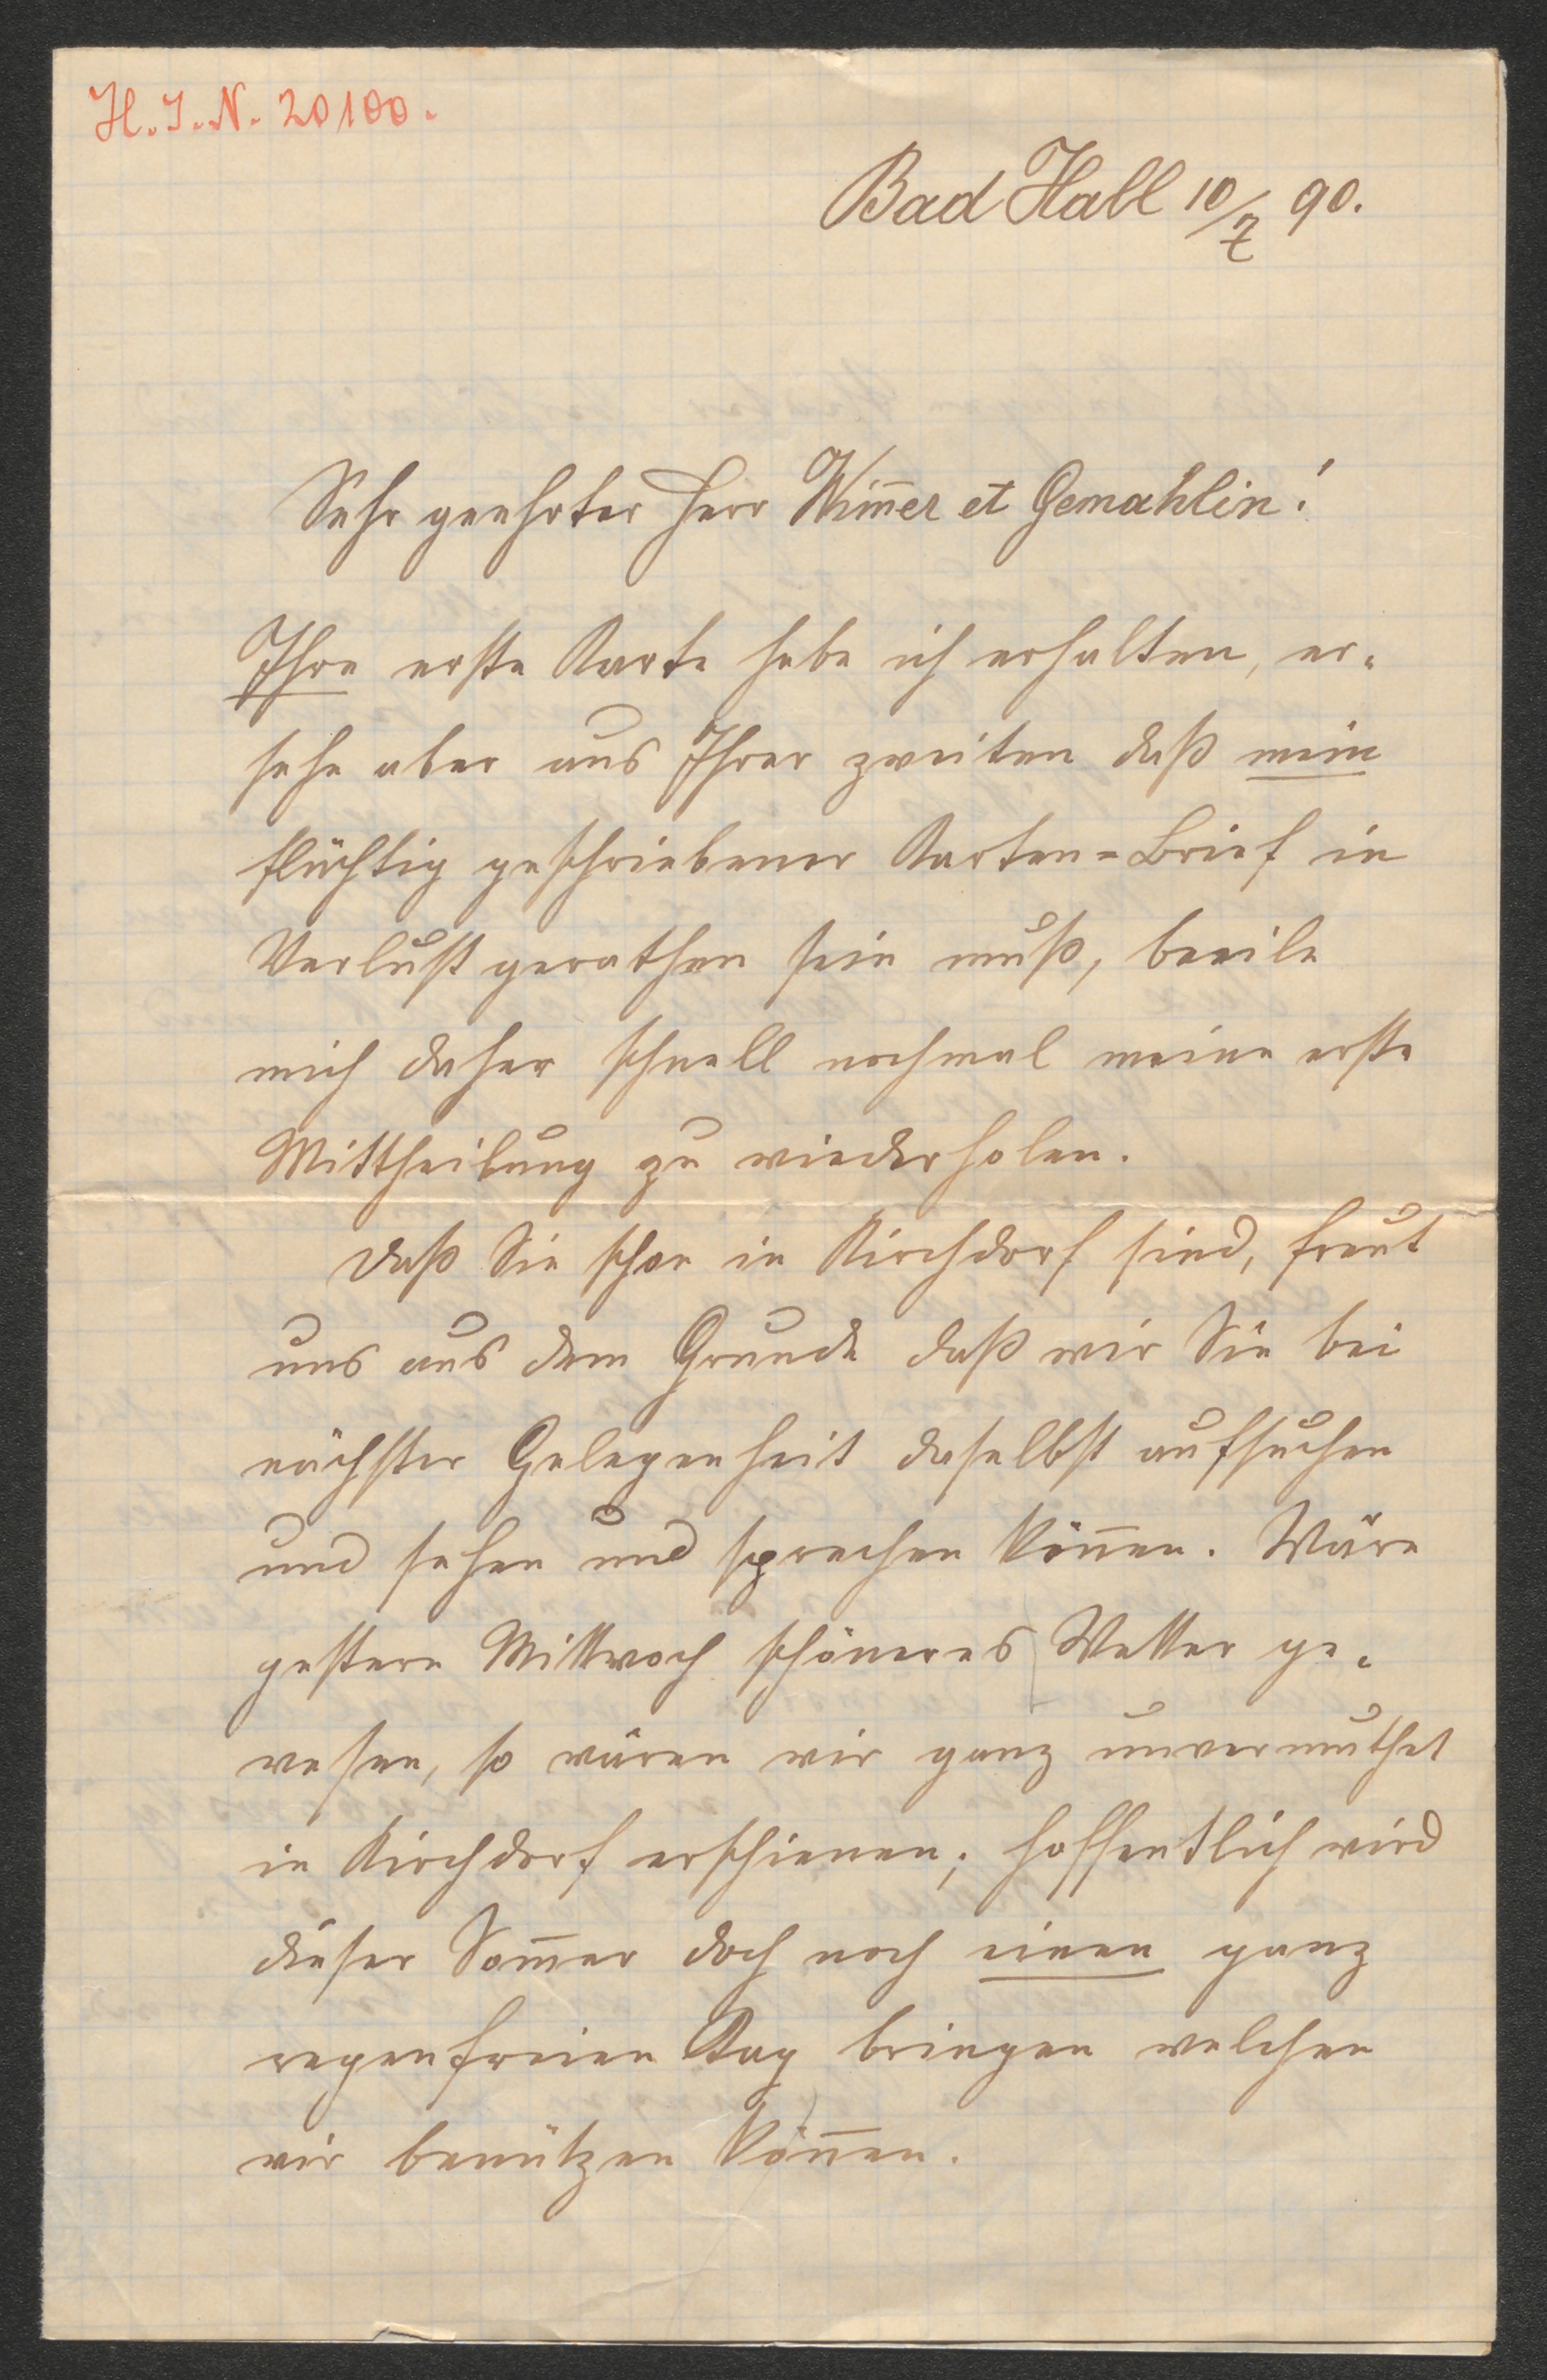 H. I. N. 20100.
Bad Hall 10/7 90.
Sehr geehrter Herr Wim̄er et Gemahlin!
Ihre erste Karte habe ich erhalten, er-
sehe aber aus Ihrer zweiten daß mein
flüchtig geschriebener Karten=Brief in
Verlust gerathen sein muß, beeile
mich daher schnell nochmal meine erste
Mittheilung zu wiederholen.
Daß Sie schon in Kirchdorf sind, freut
uns aus dem Grunde daß wir Sie bei
nächster Gelegenheit daselbst aufsuchen
und sehen und sprechen kön̄en. Wäre
gestern Mittwoch schöneres Wetter ge-
wesen, so wären wir ganz unvermuthet
in Kirchdorf erschienen; hoffentlich wird
dieser Som̄er doch noch einen ganz
regenfreien Tag bringen welchen
wir benützen kön̄en.